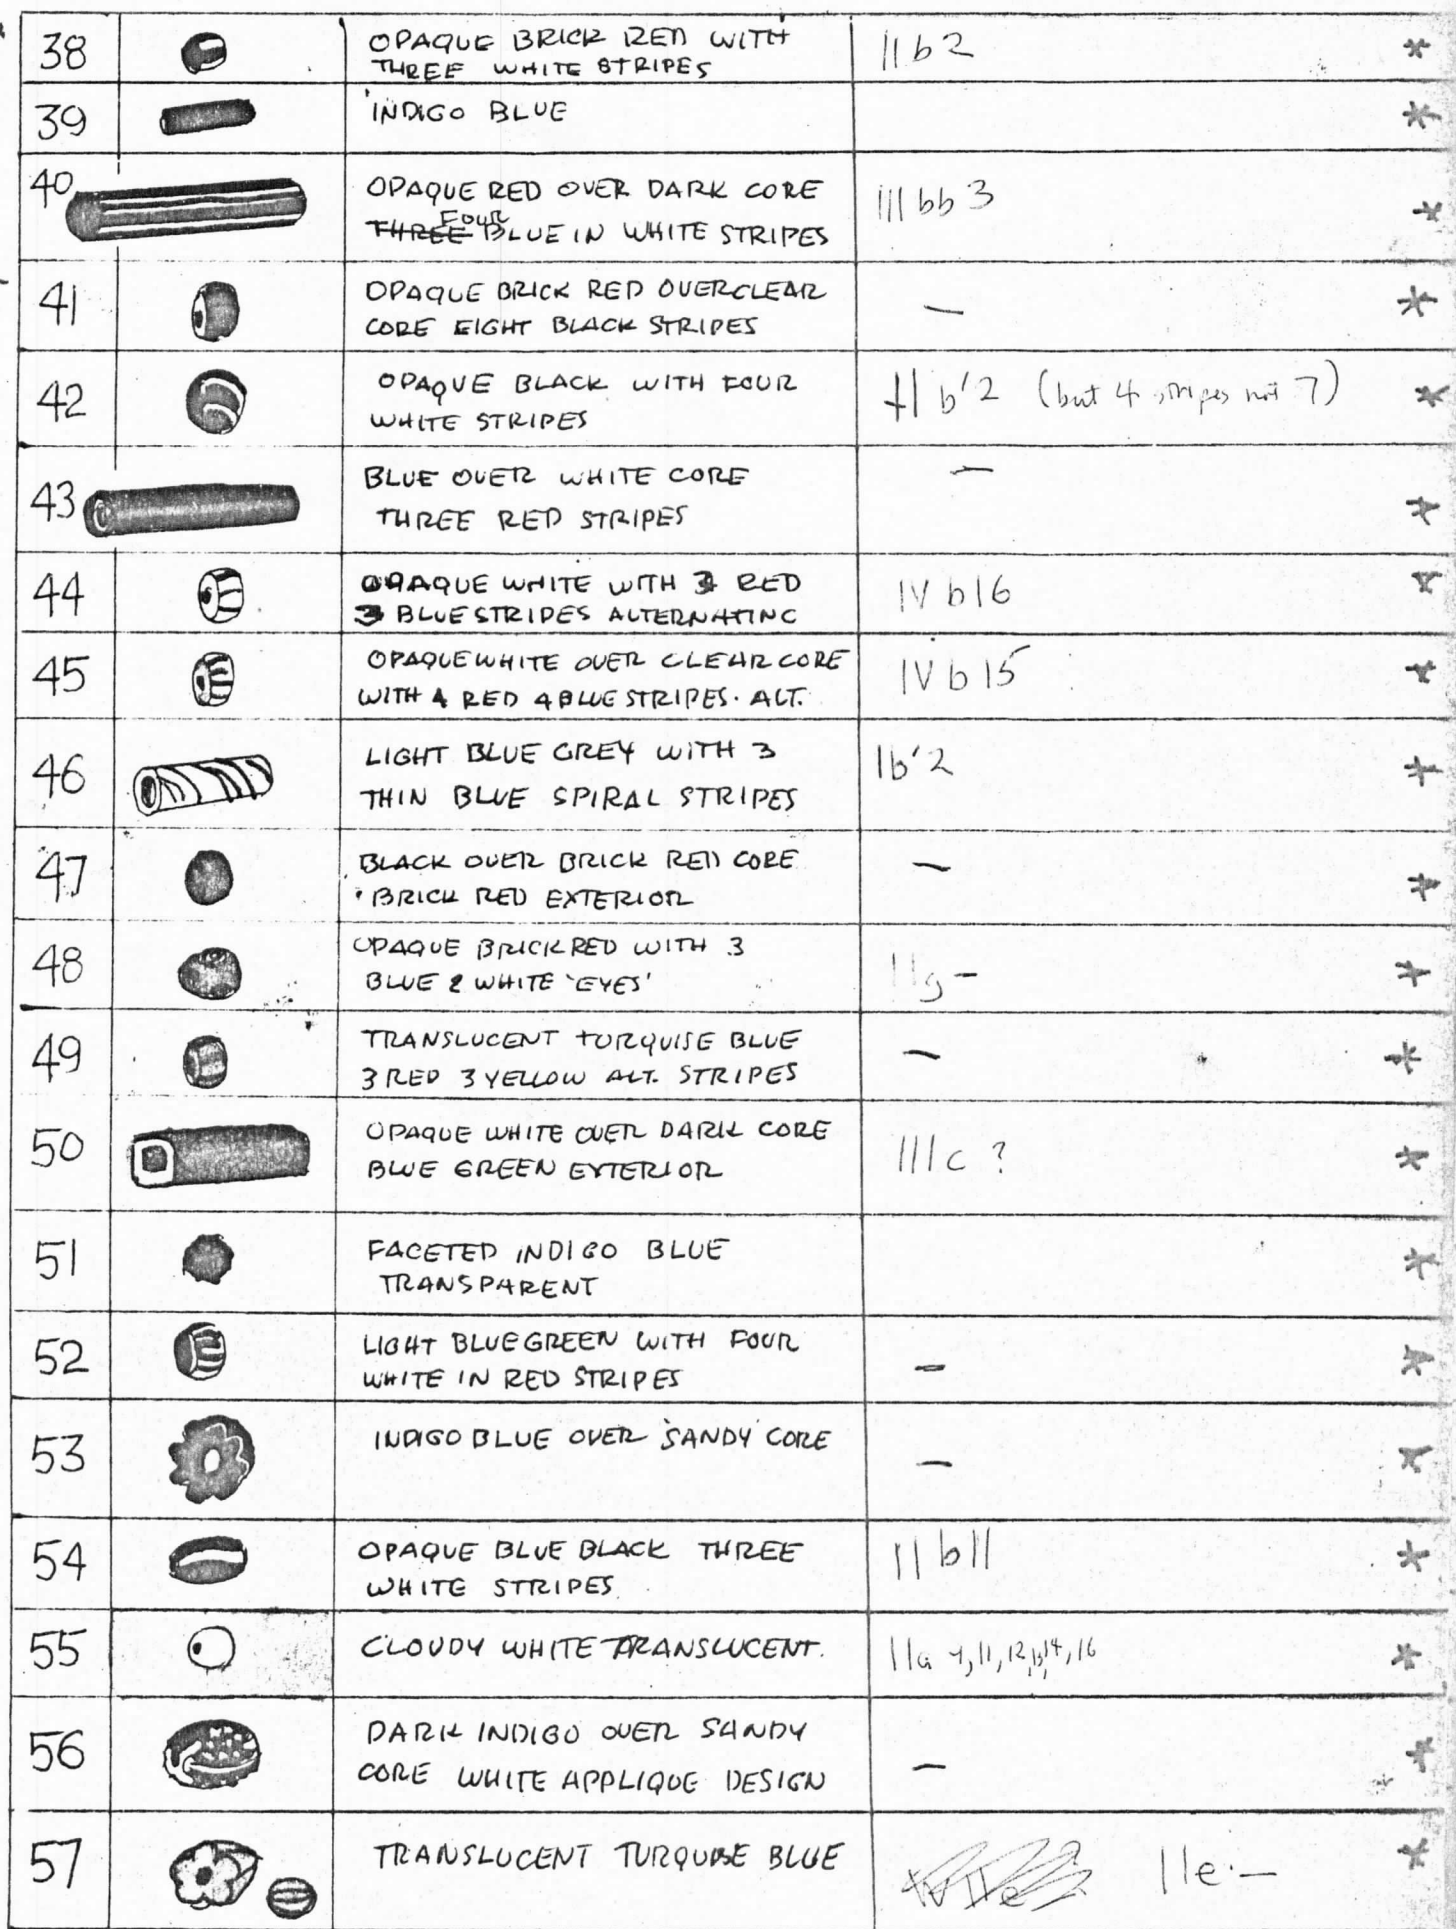 38 OPAQUE BRICK RED WITH IIb2 *
THREE WHITE STRIPES
39 INDIGO BLUE *
40 OPAQUE RED OVER DARK CORE IIIbb3 *
FOUR
THREE BLUE IN WHITE STRIPES
41 OPAQUE BRICK RED OVER CLEAR — *
CORE EIGHT BLACK STRIPES
42 OPAQUE BLACK WITH FOUR II b'2 (but 4 stripes not 7) *
WHITE STRIPES
43 BLUE OVER WHITE CORE — *
THREE RED STRIPES
44 OPAQUE WHITE WITH 3 RED IVb16 *
3 BLUE STRIPES ALTERNATING
45 OPAQUE WHITE OVER CLEAR CORE IVb15 *
WITH 4 RED 4 BLUE STRIPES. ALT.
46 LIGHT BLUE GREY WITH 3 Ib'2 *
THIN BLUE SPIRAL STRIPES
47 BLACK OVER BRICK RED CORE — *
BRICK RED EXTERIOR
48 OPAQUE BRICK RED WITH 3 IIg- *
BLUE & WHITE 'EYES'
49 TRANSLUCENT TURQUISE BLUE — *
3 RED 3 YELLOW ALT. STRIPES
50 OPAQUE WHITE OVER DARK CORE IIIc ? *
BLUE GREEN EXTERIOR
51 FACETED INDIGO BLUE *
TRANSPARENT
52 LIGHT BLUE GREEN WITH FOUR — *
WHITE IN RED STRIPES
53 INDIGO BLUE OVER SANDY CORE — *
54 OPAQUE BLUE BLACK THREE IIb11 *
WHITE STRIPES
55 CLOUDY WHITE TRANSLUCENT. IIa 11, 12, 13, 14, 16 *
56 DARK INDIGO OVER SANDY — *
CORE WHITE APPLIQUE DESIGN
57 TRANSLUCENT TURQUOISE BLUE IIe.— *